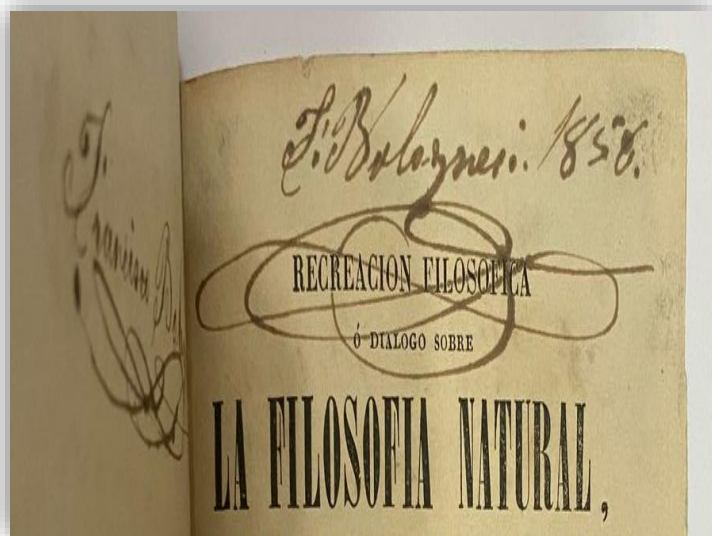 F.
Francisco B
F. Bolognesi. 1858.
RECREACION FILOSOFICA
ó DIALOGO SOBRE
LA FILOSOFIA NATURAL,